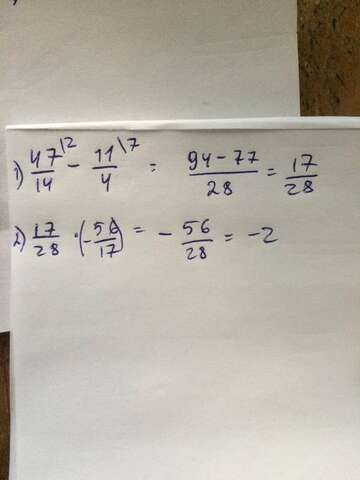 1) 47\2/14 - 11\7/4 = 94-77/28 = 17/28
2) 17/28 · (-56/17) = - 56/28 = -2